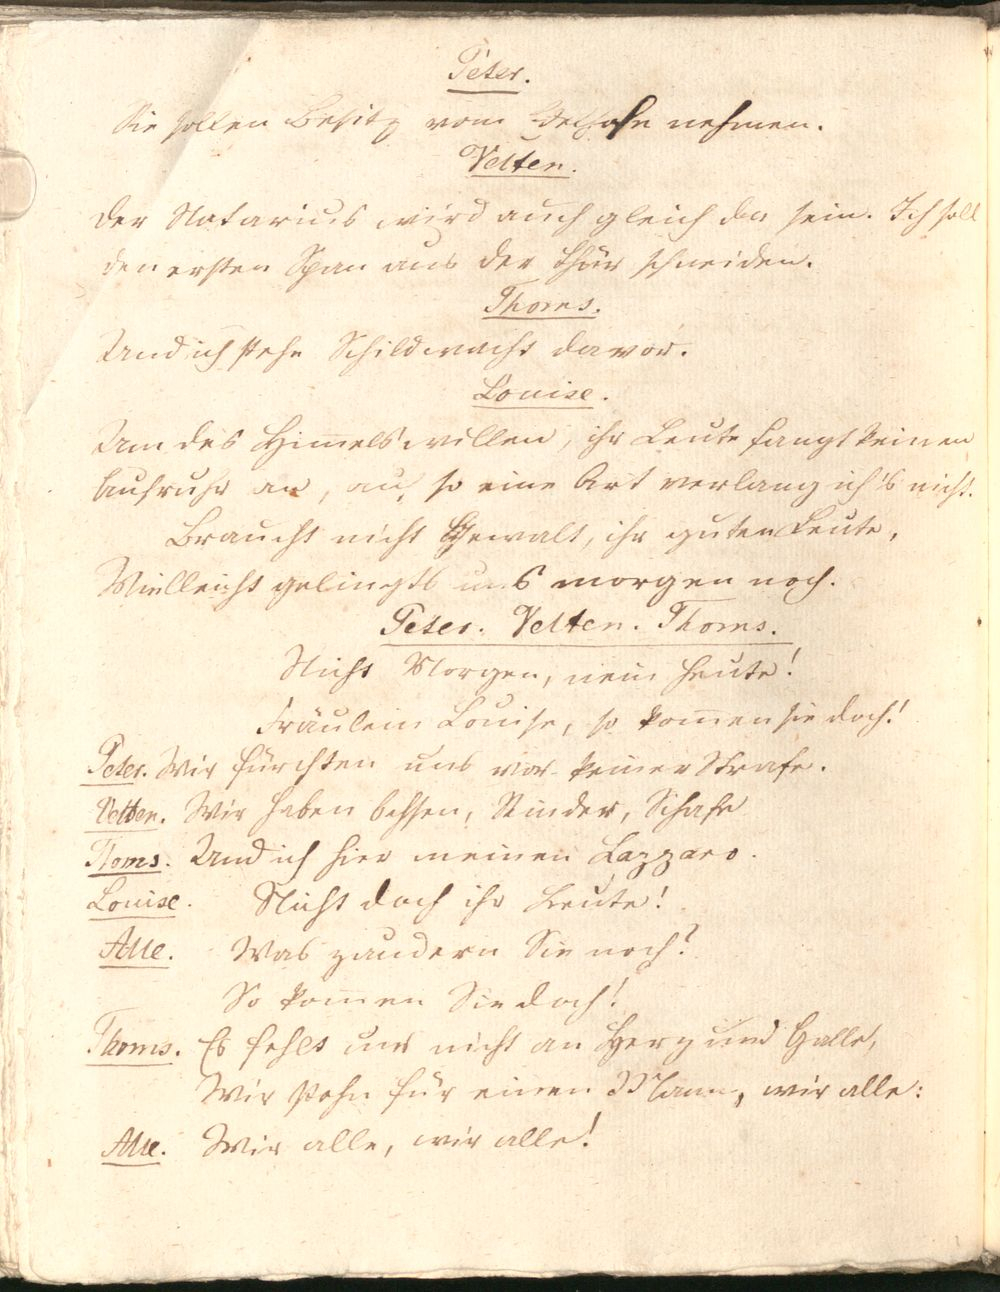 Peter.
Sie sollen Besitz vom Edelhofe nehmen.
Velten.
Der Notarius wird auch gleich da sein. Ich soll
den ersten Span aus der Thür schneiden.
Thoms.
Und ich stehe Schildwacht davor.
Louise.
Um des Himmels willen, ihr Leute fangt keinen
Aufruhr an, auf so eine Art verlang ich's nicht.
Braucht nicht Gewalt, ihr guten Leute,
Vielleicht gelingts uns morgen noch.
Peter. Velten. Thoms.
Nicht Morgen, nein heute!
Fräulein Louise, so kom̄en sie doch!
Peter. Wir fürchten uns vor keiner Strafe.
Velten. Wir haben Ochsen, Rinder, Schafe
Thoms. Und ich hier meinen Lazzaro.
Louise. Nicht doch ihr Leute!
Alle. Was zaudern Sie noch?
So kom̄en Sie doch!
Thoms. Es fehlt uns nicht an Herz und Galle,
Wir stehn für einen Mann, wir alle:
Alle. Wir alle, wir alle!